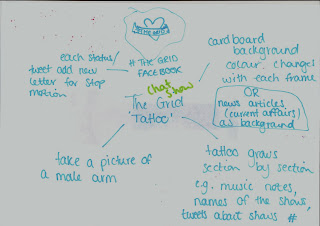 THE GRID
# THE GRID
FACEBOOK
each status/
tweet add new
letter for stop
motion
cardboard
background
colour changes
with each frame
OR
news articles
(current affairs)
as background
chat
show
The Grid
'Tattoo'
take a picture of
a male arm
tattoo grows
section by section
e.g. music notes,
names of the shows,
tweets about shows #